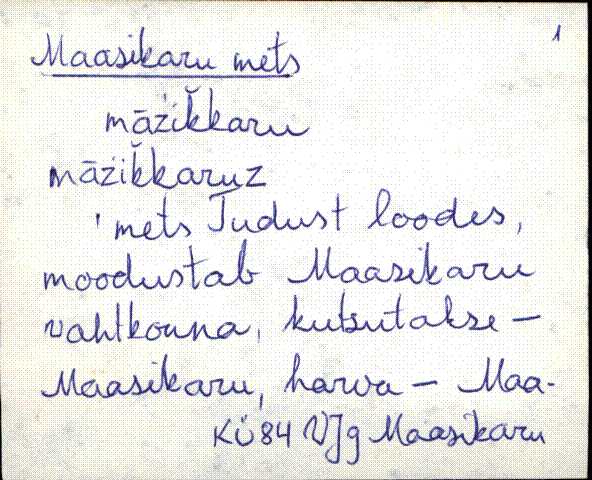 1
Maasikaru mets
māžik̆karu
māžik̆karuz
' mets Tudust loodes,
moodustab Maasikaru
vahtkonna, kutsutakse –
Maasikaru, harva – Maa-
KÜ84 VJg Maasikaru